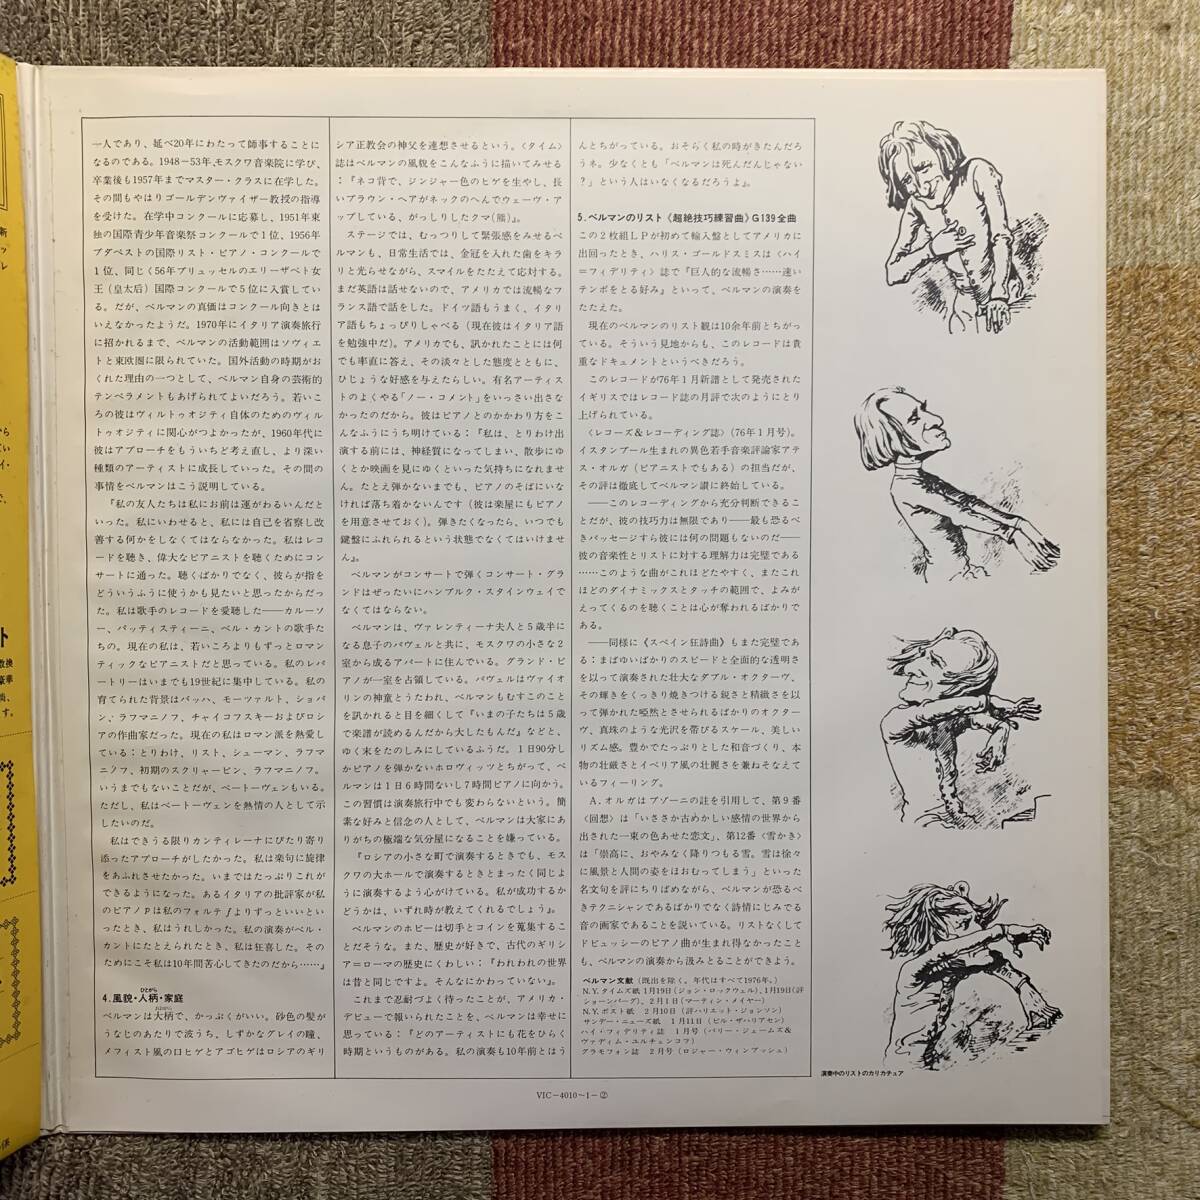 一人であり、延べ20年にわたって師事することに
なるのである。1948－53年、モスクワ音楽院に学び、
卒業後も1957年までマスター・クラスに在学した。
その間もやはりゴールデンヴァイザー教授の指導
を受けた。在学中コンクールに応募し、1951年東
独の国際青少年音楽祭コンクールで1位、1956年
ブダペストの国際リスト・ピアノ・コンクールで
1位、同じく56年ブリュッセルのエリーザベト女
王(皇太后)国際コンクールで5位に入賞してい
る。だが、ベルマンの真価はコンクール向きとは
いえなかったようだ。1970年にイタリア演奏旅行
に招かれるまで、ベルマンの活動範囲はソヴィエ
トと東欧圏に限られていた。国外活動の時期がお
くれた理由の一つとして、ベルマン自身の芸術的
テンペラメントもあげられてよいだろう。若いこ
ろの彼はヴィルトゥオジティ自体のためのヴィル
トゥオジティに関心がつよかったが、1960年代に
彼はアプローチをもういちど考え直し、より深い
種類のアーティストに成長していった。その間の
事情をベルマンはこう説明している。
『私の友人たちは私にお前は運がわるいんだと
いった。私にいわせると、私には自己を省察し改
善する何かをしなくてはならなかった。私はレコ
ードを聴き、偉大なピアニストを聴くためにコン
サートに通った。聴くばかりでなく、彼らが指を
どういうふうに使うかも見たいと思ったからだっ
た。私は歌手のレコードを愛聴した——カルーソ
ー、バッティスティーニ、ベル・カントの歌手た
ちの。現在の私は、若いころよりもずっとロマン
ティックなピアニストだと思っている。私のレパ
ートリーはいまでも19世紀に集中している。私の
育てられた背景はバッハ、モーツァルト、ショパ
ン、ラフマニノフ、チャイコフスキーおよびロシ
アの作曲家だった。現在の私はロマン派を熱愛し
ている：とりわけ、リスト、シューマン、ラフマ
ニノフ、初期のスクリャービン、ラフマニノフ。
いうまでもないことだが、ベートーヴェンもいる。
ただし、私はベートーヴェンを熱情の人として示
したいのだ。
私はできうる限りカンティレーナにぴたり寄り
添ったアプローチがしたかった。私は楽句に旋律
をあふれさせたかった。いまではたっぷりこれが
できるようになった。あるイタリアの批評家が私
のピアノpは私のフォルテfよりずっといいとい
ったとき、私はうれしかった。私の演奏がベル・
カントにたとえられたとき、私は狂喜した。その
ためにこそ私は10年間苦心してきたのだから……』
4.風貌・人柄・家庭
ベルマンは大柄で、かっぷくがいい。砂色の髪が
うなじのあたりで波うち、しずかなグレイの瞳、
メフィスト風の口ヒゲとアゴヒゲはロシアのギリ
シア正教会の神父を連想させるという。〈タイム〉
誌はベルマンの風貌をこんなふうに描いてみせる
：『ネコ背で、ジンジャー色のヒゲを生やし、長
いブラウン・ヘアがネックのへんでウェーヴ・ア
ップしている、がっしりしたクマ(熊)』。
ステージでは、むっつりして緊張感をみせるベ
ルマンも、日常生活では、金冠を入れた歯をキラ
リと光らせながら、スマイルをたたえて応対する。
まだ英語は話せないので、アメリカでは流暢なフ
ランス語で話をした。ドイツ語もうまく、イタリ
ア語もちょっぴりしゃべる(現在彼はイタリア語
を勉強中だ)。アメリカでも、訊かれたことには何
でも率直に答え、その淡々とした態度とともに、
ひじょうな好感を与えたらしい。有名アーティス
トのよくやる「ノー・コメント」をいっさい出さな
かったのだから。彼はピアノとのかかわり方をこ
んなふうにうち明けている：『私は、とりわけ出
演する前には、神経質になってしまい、散歩にゆ
くとか映画を見にゆくといった気持ちになれませ
ん。たとえ弾かないまでも、ピアノのそばにいな
ければ落ち着かないんです(彼は楽屋にもピアノ
を用意させておく)。弾きたくなったら、いつでも
鍵盤にふれられるという状態でなくてはいけませ
ん』。
ベルマンがコンサートで弾くコンサート・グラ
ンドはぜったいにハンブルク・スタインウェイで
なくてはならない。
ベルマンは、ヴァレンティーナ夫人と5歳半に
なる息子のパヴェルと共に、モスクワの小さな2
室から成るアパートに住んでいる。グランド・ピ
アノが一室を占領している。パヴェルはヴァイオ
リンの神童とうたわれ、ベルマンもむすこのこと
を訊かれると目を細くして『いまの子たちは5歳
で楽譜が読めるんだから大したもんだ』などと、
ゆく末をたのしみにしているふうだ。1日90分し
かピアノを弾かないホロヴィッツとちがって、ベ
ルマンは1日6時間ないし7時間ピアノに向かう。
この習慣は演奏旅行中でも変わらないという。簡
素な好みと信念の人として、ベルマンは大家にあ
りがちの極端な気分屋になることを嫌っている。
『ロシアの小さな町で演奏するときでも、モス
クワの大ホールで演奏するときとまったく同じよ
うに演奏するよう心がけている。私が成功するか
どうかは、いずれ時が教えてくれるでしょう』。
ベルマンのホビーは切手とコインを蒐集するこ
とだそうな。また、歴史が好きで、古代のギリシ
ア＝ローマの歴史にくわしい：『われわれの世界
は昔と同じですよ。そんなにかわっていない』。
これまで忍耐づよく待ったことが、アメリカ・
デビューで報いられたことを、ベルマンは幸せに
思っている：『どのアーティストにも花をひらく
時期というものがある。私の演奏も10年前とはう
んとちがっている。おそらく私の時がきたんだろ
うネ。少なくとも「ベルマンは死んだんじゃない
？」という人はいなくなるだろうよ』。
5.ベルマンのリスト《超絶技巧練習曲》G139全曲
この2枚組LPが初めて輸入盤としてアメリカに
出回ったとき、ハリス・ゴールドスミスは〈ハイ
＝フィデリティ〉誌で『巨人的な流暢さ……速い
テンポをとる好み』といって、ベルマンの演奏を
たたえた。
現在のベルマンのリスト観は10余年前とちがっ
ている。そういう見地からも、このレコードは貴
重なドキュメントというべきだろう。
このレコードが76年1月新譜として発売された
イギリスではレコード誌の月評で次のようにとり
上げられている。
〈レコーズ＆レコーディング誌〉(76年1月号)。
イスタンブール生まれの異色若手音楽評論家アテ
ス・オルガ(ピアニストでもある)の担当だが、
その評は徹底してベルマン讃に終始している。
——このレコーディングから充分判断できるこ
とだが、彼の技巧力は無限であり——最も恐るべ
きパッセージすら彼には何の問題もないのだ——
彼の音楽性とリストに対する理解力は完璧である
……このような曲がこれほどたやすく、またこれ
ほどのダイナミックスとタッチの範囲で、よみが
えってくるのを聴くことは心が奪われるばかりで
ある。
——同様に《スペイン狂詩曲》もまた完璧であ
る：まばゆいばかりのスピードと全面的な透明さ
を以って演奏された壮大なダブル・オクターヴ、
その輝きをくっきり焼きつける鋭さと精緻さを以
って弾かれた啞然とさせられるばかりのオクター
ヴ、真珠のような光沢を帯びるスケール、美しい
リズム感。豊かでたっぷりとした和音づくり、本
物の壮厳さとイベリア風の壮麗さを兼ねそなえて
いるフィーリング。
A.オルガはブゾーニの註を引用して、第9番
〈回想〉は「いささか古めかしい感情の世界から
出された一束の色あせた恋文」、第12番〈雪かき〉
は「崇高に、おやみなく降りつもる雪。雪は徐々
に風景と人間の姿をほおむってしまう」といった
名文句を評にちりばめながら、ベルマンが恐るべ
きテクニシャンであるばかりでなく詩情にじみでる
音の画家であることを説いている。リストなくして
ドビュッシーのピアノ曲が生まれ得なかったこと
も、ベルマンの演奏から汲みとることができよう。
ベルマン文献(既出を除く。年代はすべて1976年。)
N.Y.タイムズ紙 1月19日(ジョン・ロックウェル)、1月19日(評
ショーンバーグ)、2月1日(マーティン・メイヤー)
N.Y.ポスト紙 2月10日(評ハリエット・ジョンソン)
サンデー・ニューズ紙 1月11日(ビル・ザハリアセン)
ハイ・フィデリティ誌 1月号(バリー・ジェームズ＆
ヴァディム・ユルチェンコフ)
グラモフォン誌 2月号(ロジャー・ウィンブッシュ)
演奏中のリストのカリカチュア
VIC－4010～1－②